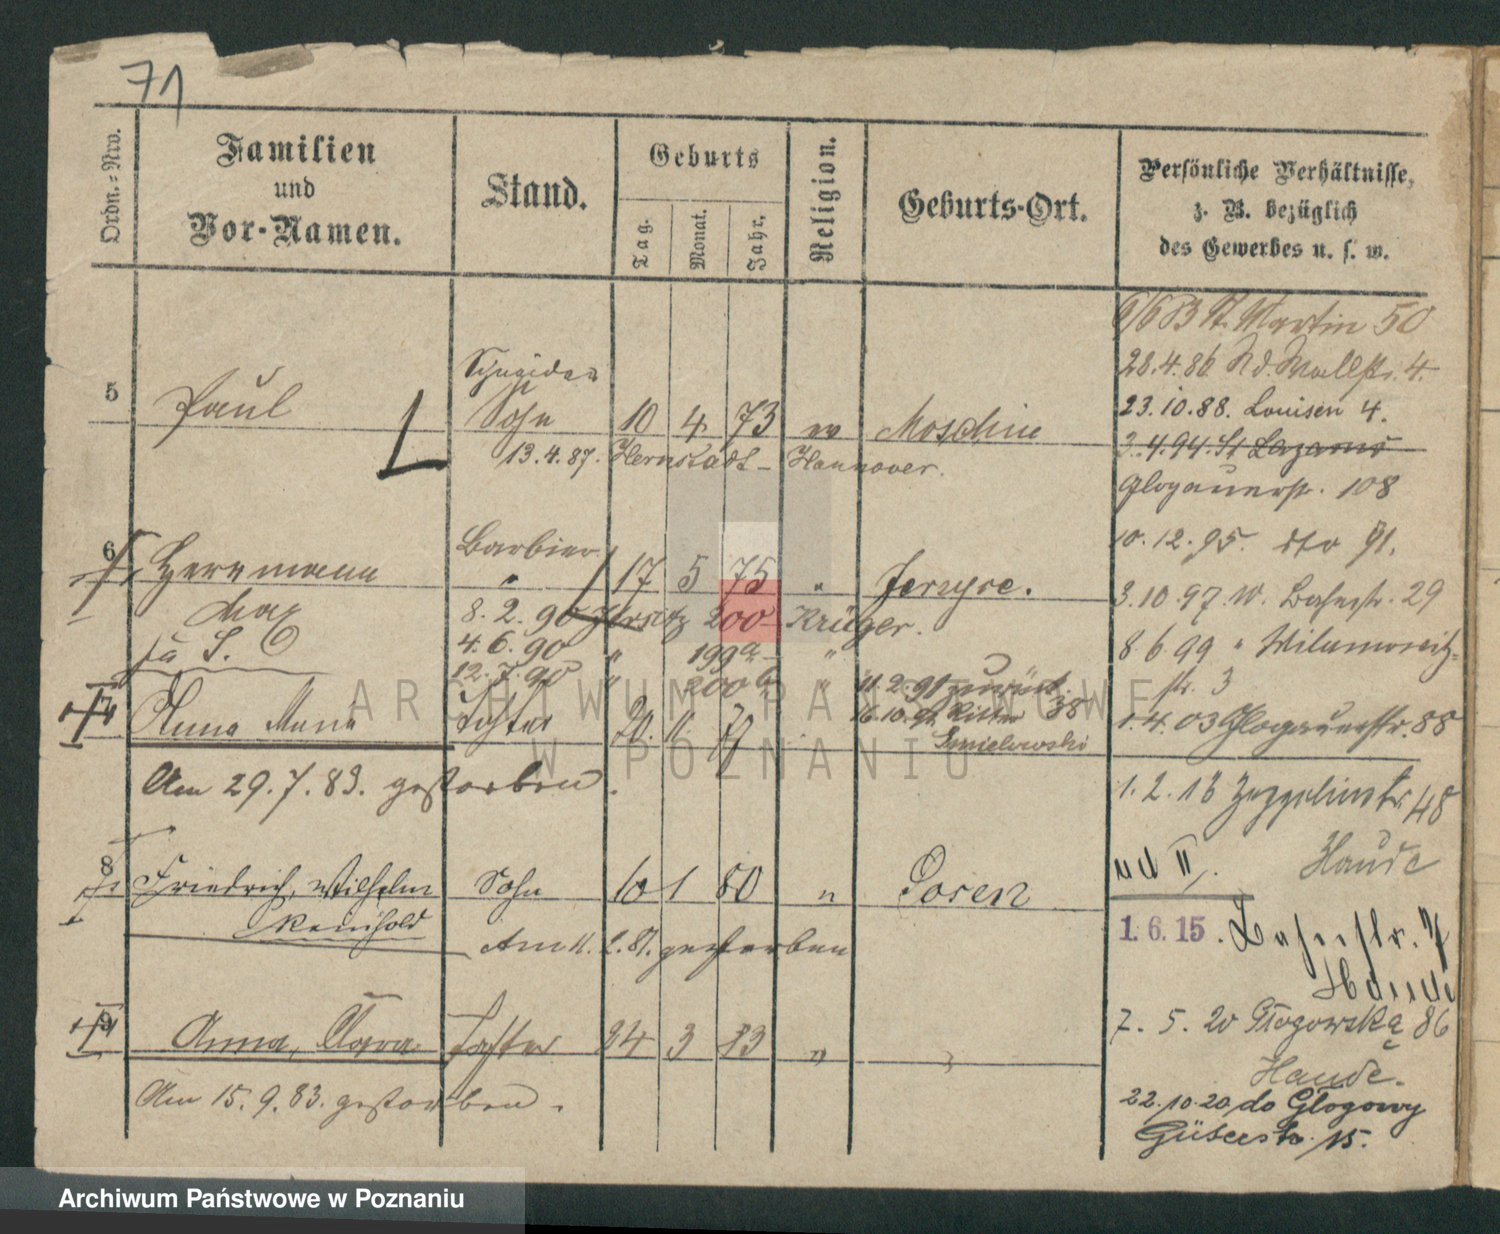 71
Ordn.-Nro.
Familien
und
Vor-Namen.
Stand.
Geburts
Tag.
Monat.
Jahr.
Religion.
Geburts-Ort.
Persönliche Verhältnisse,
z. B. bezüglich
des Gewerbes u. s. w.
5 Paul
Schneider
Sohn 10 4 73 ev Moschin
13.4.87. Herrnstadt - Hannover.
6 Herrmann
Max
Barbier
" 17 5 75 " Jersyce.
8.2.90 Jersitz 200 Krüger.
4.6.90 " 199a "
12.7.90 " 200b "
11.2.91 zurück.
16.10.91 Ritter 38
Smielowski
7 Anna Maria Tochter 20. 11. 79
Am 29.7.83. gestorben.
8 Friedrich, Wilhelm Sohn 10 1 80 " Posen
Reinhold
Am 11. 2. 81. gestorben
9 Anna, Clara Tochter 24 3 83 "
Am 15.9.83. gestorben.
6/6 83 St. Martin 50
28.4.86 Nd. Wallstr. 4.
23.10.88. Louisen 4.
3.4.94. St Lazarus
Glogauerstr. 108
10.12.95. dto 91.
3.10.97. W. Bahnstr. 29
8 6 99 " Wilamowitz-
str. 3
1.4.03 Glogauerstr. 88
1.2.13 Zeppelinstr 48
Haude
1.6.15. Bahnstr.
Haude
7. 5. 20 Głogowska 86
Haude.
22.10.20 do Głogowy
Güterstr. 15.
ARCHIWUM PAŃSTWOWE
W POZNANIU
Archiwum Państwowe w Poznaniu